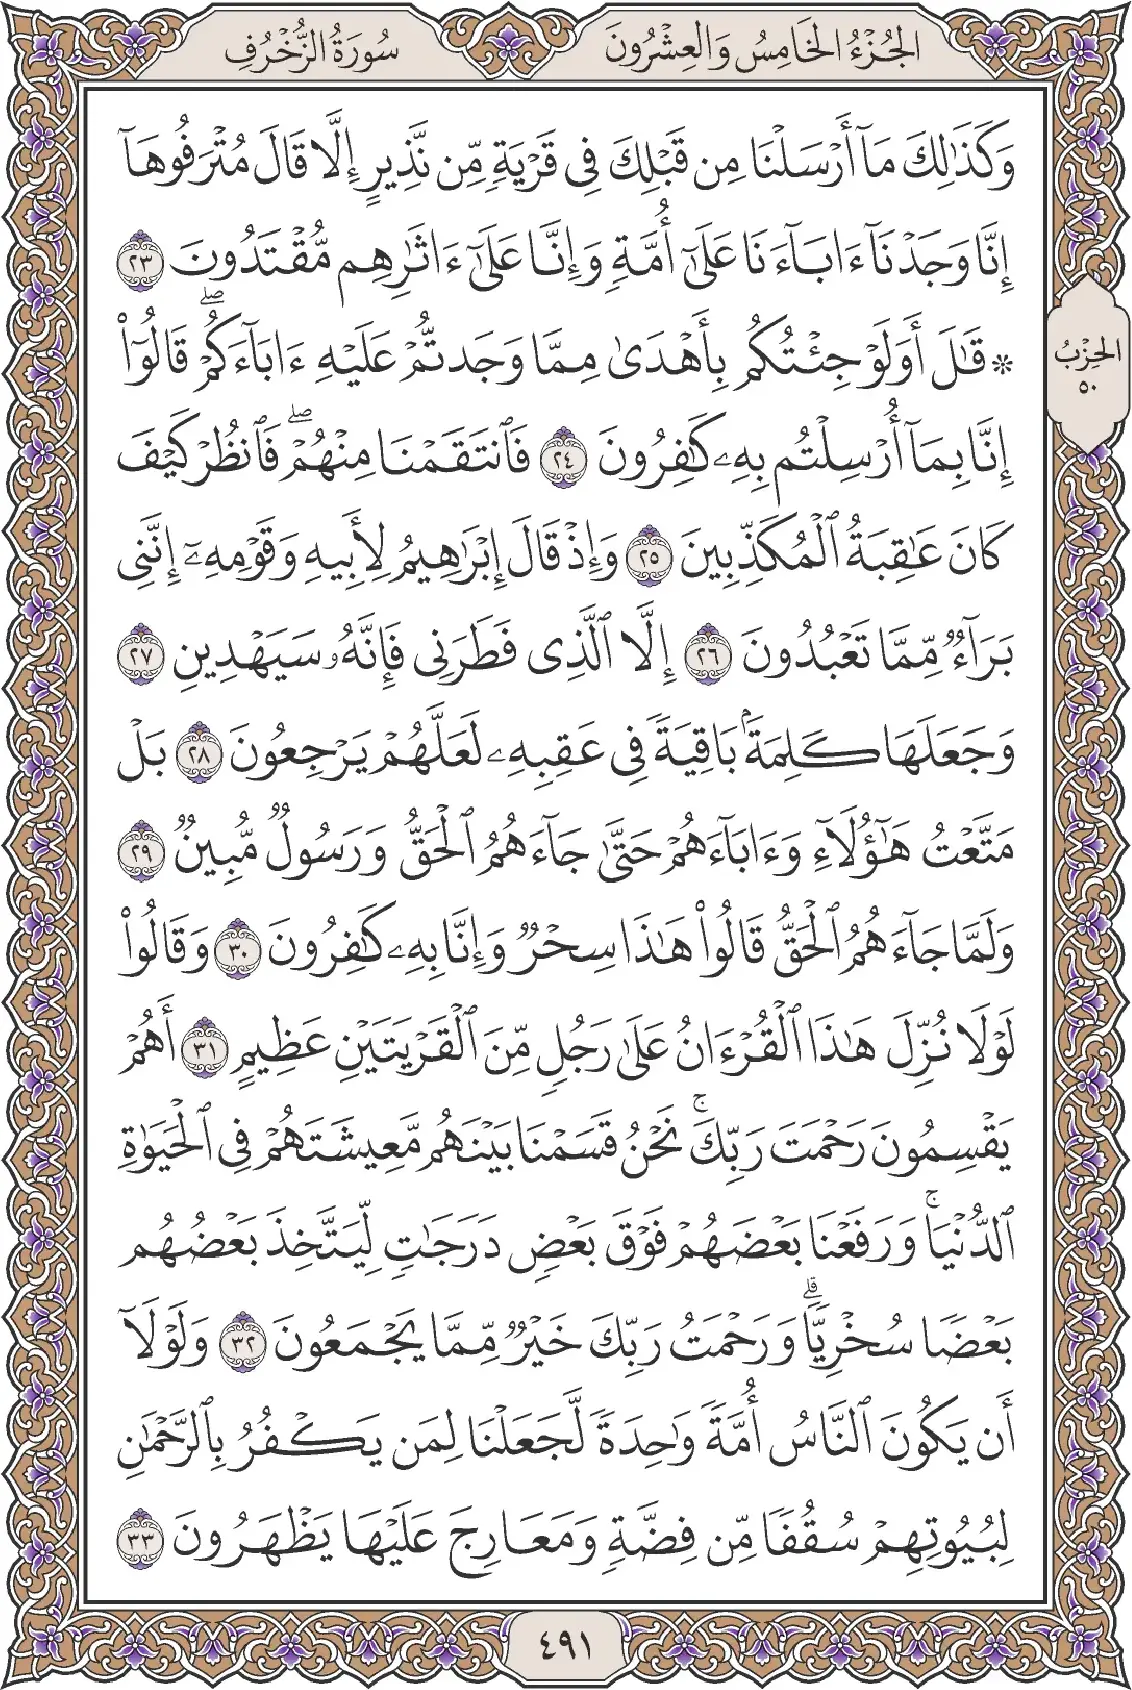 الجُزْءُ الخَامِسُ وَالعِشْرُونَ
سُورَةُ الزُّخْرُفِ
وَكَذَٰلِكَ مَآ أَرْسَلْنَا مِن قَبْلِكَ فِى قَرْيَةٍ مِّن نَّذِيرٍ إِلَّا قَالَ مُتْرَفُوهَآ
إِنَّا وَجَدْنَآ ءَابَآءَنَا عَلَىٰٓ أُمَّةٍ وَإِنَّا عَلَىٰٓ ءَاثَٰرِهِم مُّقْتَدُونَ ٢٣
۞ قَٰلَ أَوَلَوْ جِئْتُكُم بِأَهْدَىٰ مِمَّا وَجَدتُّمْ عَلَيْهِ ءَابَآءَكُمْ ۖ قَالُوٓا۟
الحِزْبُ
٥٠
إِنَّا بِمَآ أُرْسِلْتُم بِهِۦ كَٰفِرُونَ ٢٤ فَٱنتَقَمْنَا مِنْهُمْ ۖ فَٱنظُرْ كَيْفَ
كَانَ عَٰقِبَةُ ٱلْمُكَذِّبِينَ ٢٥ وَإِذْ قَالَ إِبْرَٰهِيمُ لِأَبِيهِ وَقَوْمِهِۦٓ إِنَّنِى
بَرَآءٌ مِّمَّا تَعْبُدُونَ ٢٦ إِلَّا ٱلَّذِى فَطَرَنِى فَإِنَّهُۥ سَيَهْدِينِ ٢٧
وَجَعَلَهَا كَلِمَةًۢ بَاقِيَةً فِى عَقِبِهِۦ لَعَلَّهُمْ يَرْجِعُونَ ٢٨ بَلْ
مَتَّعْتُ هَٰٓؤُلَآءِ وَءَابَآءَهُمْ حَتَّىٰ جَآءَهُمُ ٱلْحَقُّ وَرَسُولٌ مُّبِينٌ ٢٩
وَلَمَّا جَآءَهُمُ ٱلْحَقُّ قَالُوا۟ هَٰذَا سِحْرٌ وَإِنَّا بِهِۦ كَٰفِرُونَ ٣٠ وَقَالُوا۟
لَوْلَا نُزِّلَ هَٰذَا ٱلْقُرْءَانُ عَلَىٰ رَجُلٍ مِّنَ ٱلْقَرْيَتَيْنِ عَظِيمٍ ٣١ أَهُمْ
يَقْسِمُونَ رَحْمَتَ رَبِّكَ ۚ نَحْنُ قَسَمْنَا بَيْنَهُم مَّعِيشَتَهُمْ فِى ٱلْحَيَوٰةِ
ٱلدُّنْيَا ۚ وَرَفَعْنَا بَعْضَهُمْ فَوْقَ بَعْضٍ دَرَجَٰتٍ لِّيَتَّخِذَ بَعْضُهُم
بَعْضًا سُخْرِيًّا ۗ وَرَحْمَتُ رَبِّكَ خَيْرٌ مِّمَّا يَجْمَعُونَ ٣٢ وَلَوْلَآ
أَن يَكُونَ ٱلنَّاسُ أُمَّةً وَٰحِدَةً لَّجَعَلْنَا لِمَن يَكْفُرُ بِٱلرَّحْمَٰنِ
لِبُيُوتِهِمْ سُقُفًا مِّن فِضَّةٍ وَمَعَارِجَ عَلَيْهَا يَظْهَرُونَ ٣٣
٤٩١